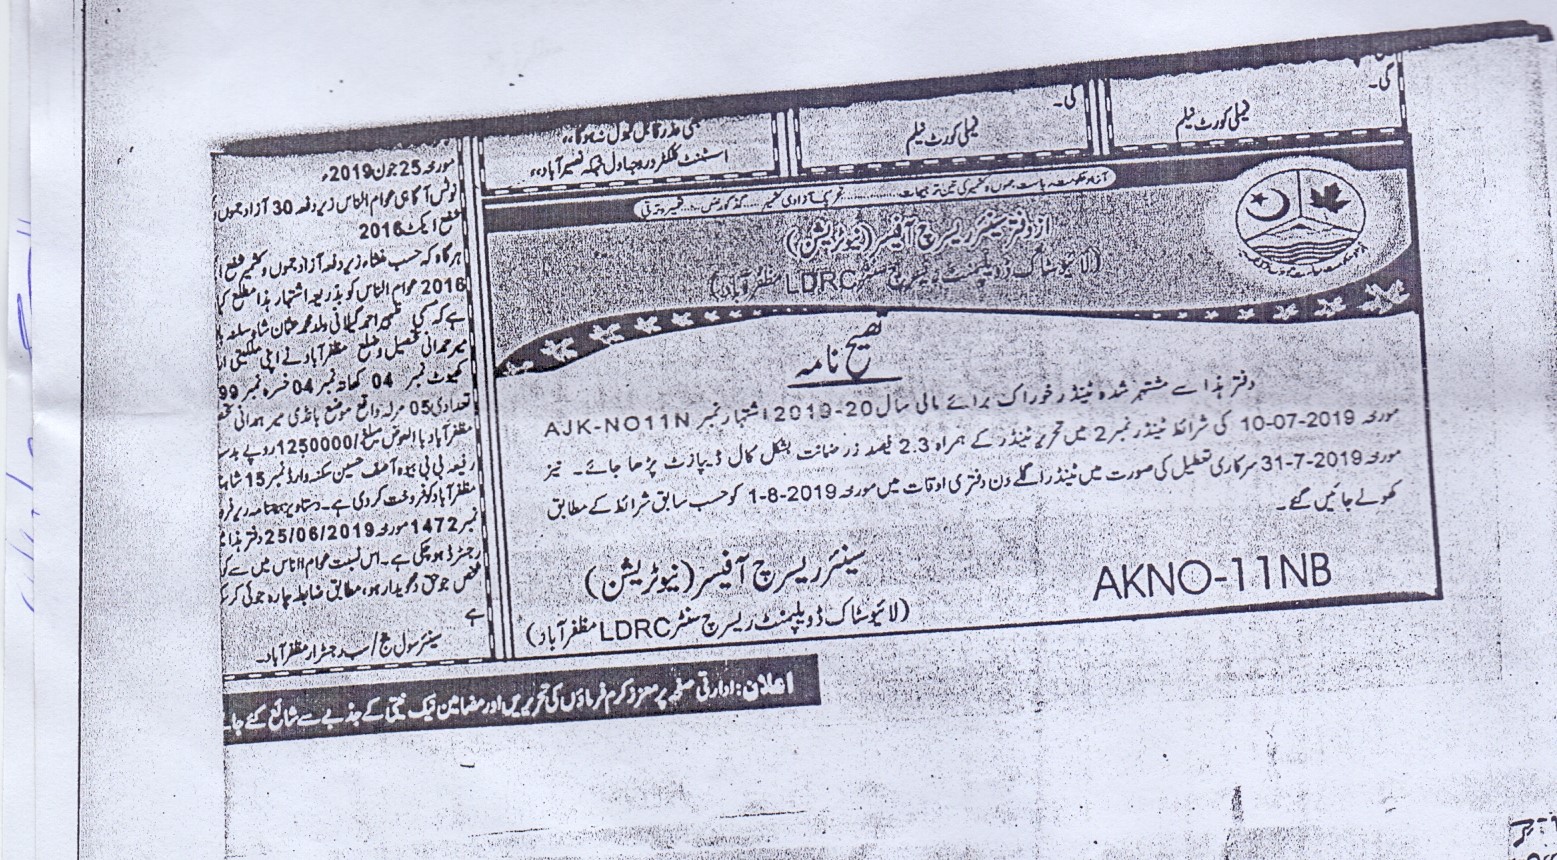 کی۔
فیملی کورٹ نیلم
کی۔
فیملی کورٹ نیلم
عذر قابل قبول نہ ہوگا،،
اسسٹنٹ کلکٹر درجہ اول نصیر آباد،،
آزاد حکومت ریاست جموں و کشمیر کی تین ترجیحات
تحریک آزادی کشمیر ..... گڈ گورننس ..... تعمیر و ترقی
از دفتر سینئر ریسرچ آفیسر (نیوٹریشن)
(لائیوسٹاک ڈویلپمنٹ ریسرچ سنٹر LDRC مظفرآباد)
تصحیح نامہ
دفتر ہذا سے مشتہر شدہ ٹینڈر خوراک برائے مالی سال 20-2019 اشتہار نمبر AJK-NO11N
مورخہ 10-07-2019 کی شرائط ٹینڈر نمبر 2 میں تحریر ٹینڈر کے ہمراہ 2.3 فیصد زر ضمانت بشکل کال ڈیپازٹ پڑھا جائے۔ نیز
مورخہ 31-7-2019 سرکاری تعطیل کی صورت میں ٹینڈر اگلے دن دفتری اوقات میں مورخہ 1-8-2019 کو حسب سابق شرائط کے مطابق
کھولے جائیں گئے۔
سینئر ریسرچ آفیسر (نیوٹریشن)
(لائیوسٹاک ڈویلپمنٹ ریسرچ سنٹر LDRC مظفرآباد)
AKNO-11NB
مورخہ 25 جون 2019ء
نوٹس آگاہی عوام الناس زیر دفعہ 30 آزاد جموں
شفع ایکٹ 2016
ہرگاہ کہ حسب منشاء زیر دفعہ آزاد جموں و کشمیر شفع
2016 عوام الناس کو بذریعہ اشتہار ہذا مطلع کیا
ہے کہ ظہیر احمد گیلانی ولد محمد عثمان شاہ سکنہ
میر ہمدانی تحصیل و ضلع مظفرآباد نے اپنی ملکیتی
کھیوٹ نمبر 04 کھاتہ نمبر 04 خسرہ نمبر 99
تعدادی 05 مرلہ واقع موضع بانڈی میر ہمدانی
مظفرآباد بالعوض مبلغ/1250000 روپے بدست
بی بی بیوہ آصف حسین سکنہ وارڈ نمبر 15
مظفرآباد کو فروخت کر دی ہے۔ دستاویز بیعنامہ زیر
نمبر 1472 مورخہ 25/06/2019 دفتر ہذا
رجسٹرڈ ہوچکی ہے۔ اس نسبت عوام الناس میں سے
شخص جو حق دعویدار ہو، مطابق ضابطہ چارہ جوئی
ہے
سینئر سول جج/سب رجسٹرار مظفرآباد۔
اعلان: ادارتی صفحہ پر معزز کرم فرماؤں کی تحریریں اور مضامین نیک نیتی کے جذبے سے شائع کئے